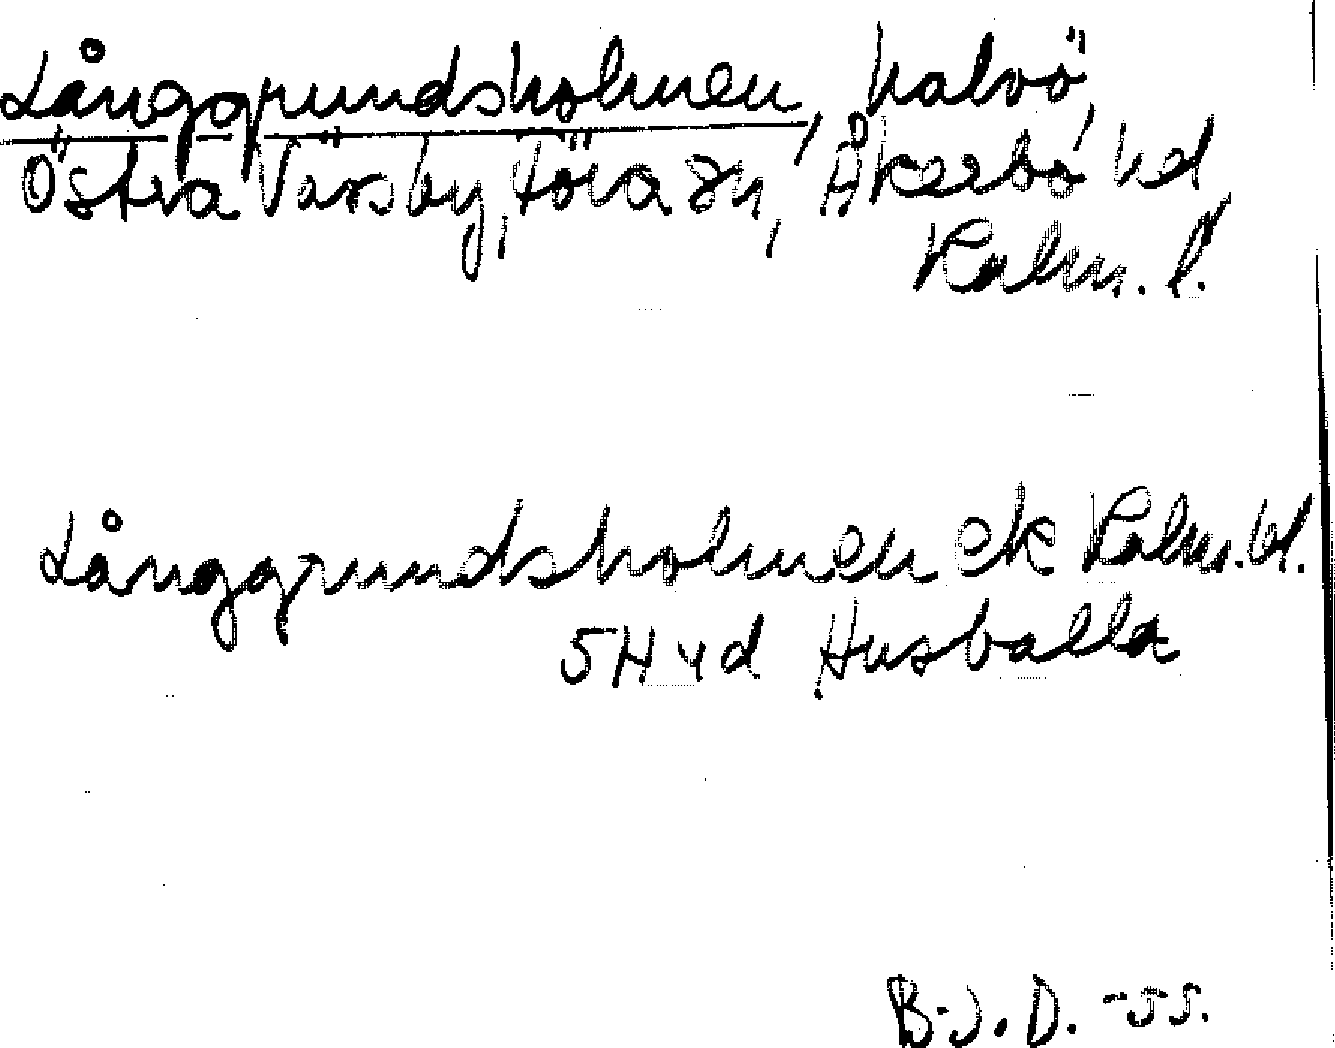 Långgrundsholmen, halvö,
Östra Vässby, Föra sn, Åkerbo hd
Kalm. l.
Långgrundsholmen ek Kalm. bl.
5H yd Husvalla
B.J.D. -55.